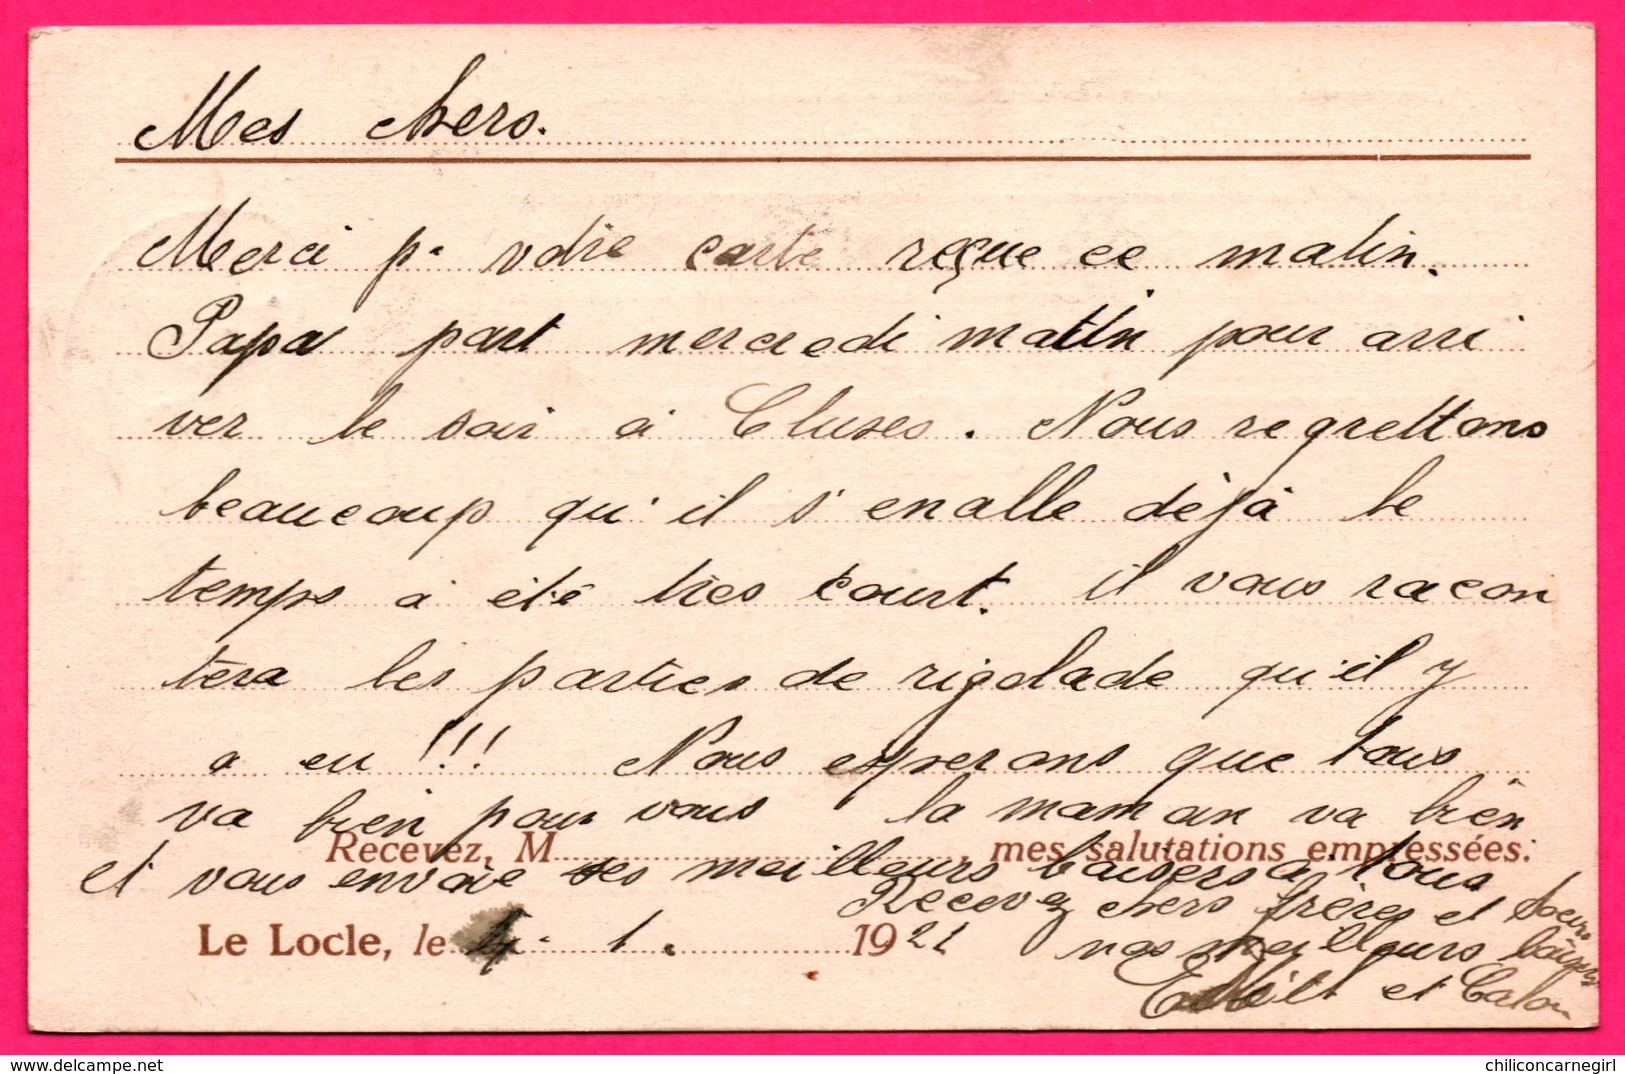 Mes chers.
Merci pr votre carte reçue ce matin.
Papa part mercredi matin pour arri
ver le soir à Cluses. Nous regrettons
beaucoup qu'il s'enalle déjà le
temps à été très court. il vous racon
tera les parties de rigolade qu'il y
a eu !!! Nous esperons que tous
va bien pour vous la maman va bien
Recevez, M , mes salutations empressées.
et vous envoie ses meilleurs baisers a tous
Recevez chers frères et soeurs
Le Locle, le 4. 1. 1921 nos meilleurs baisers
et
chiliconcarnegirl